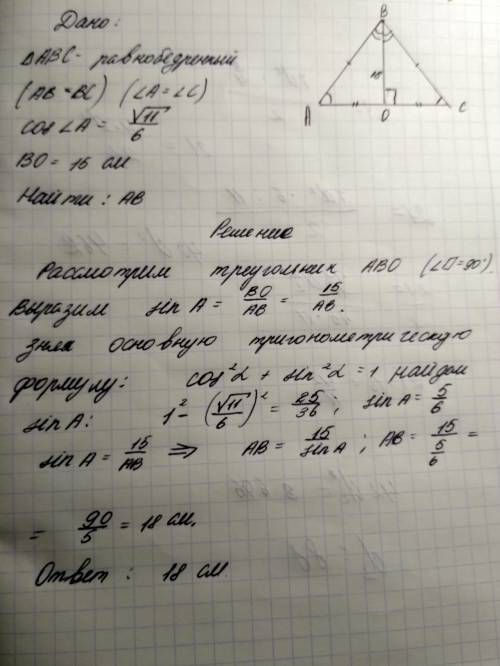 Дано:
ΔABC - равнобедренный
(AB = BC) (∠A = ∠C)
cos∠A = √11/6
BO = 15 см
Найти: AB
B
15
A
O
C
Решение
Рассмотрим треугольник ABO (∠O=90°).
Выразим sin A = BO/AB = 15/AB.
зная основную тригонометрическую
формулу: cos²α + sin²α = 1 найдем
sin A: 1² - (√11/6)² = 25/36; sin A = 5/6
sin A = 15/AB ⇒ AB = 15/sin A; AB = 15/(5/6) =
= 90/5 = 18 см.
Ответ: 18 см